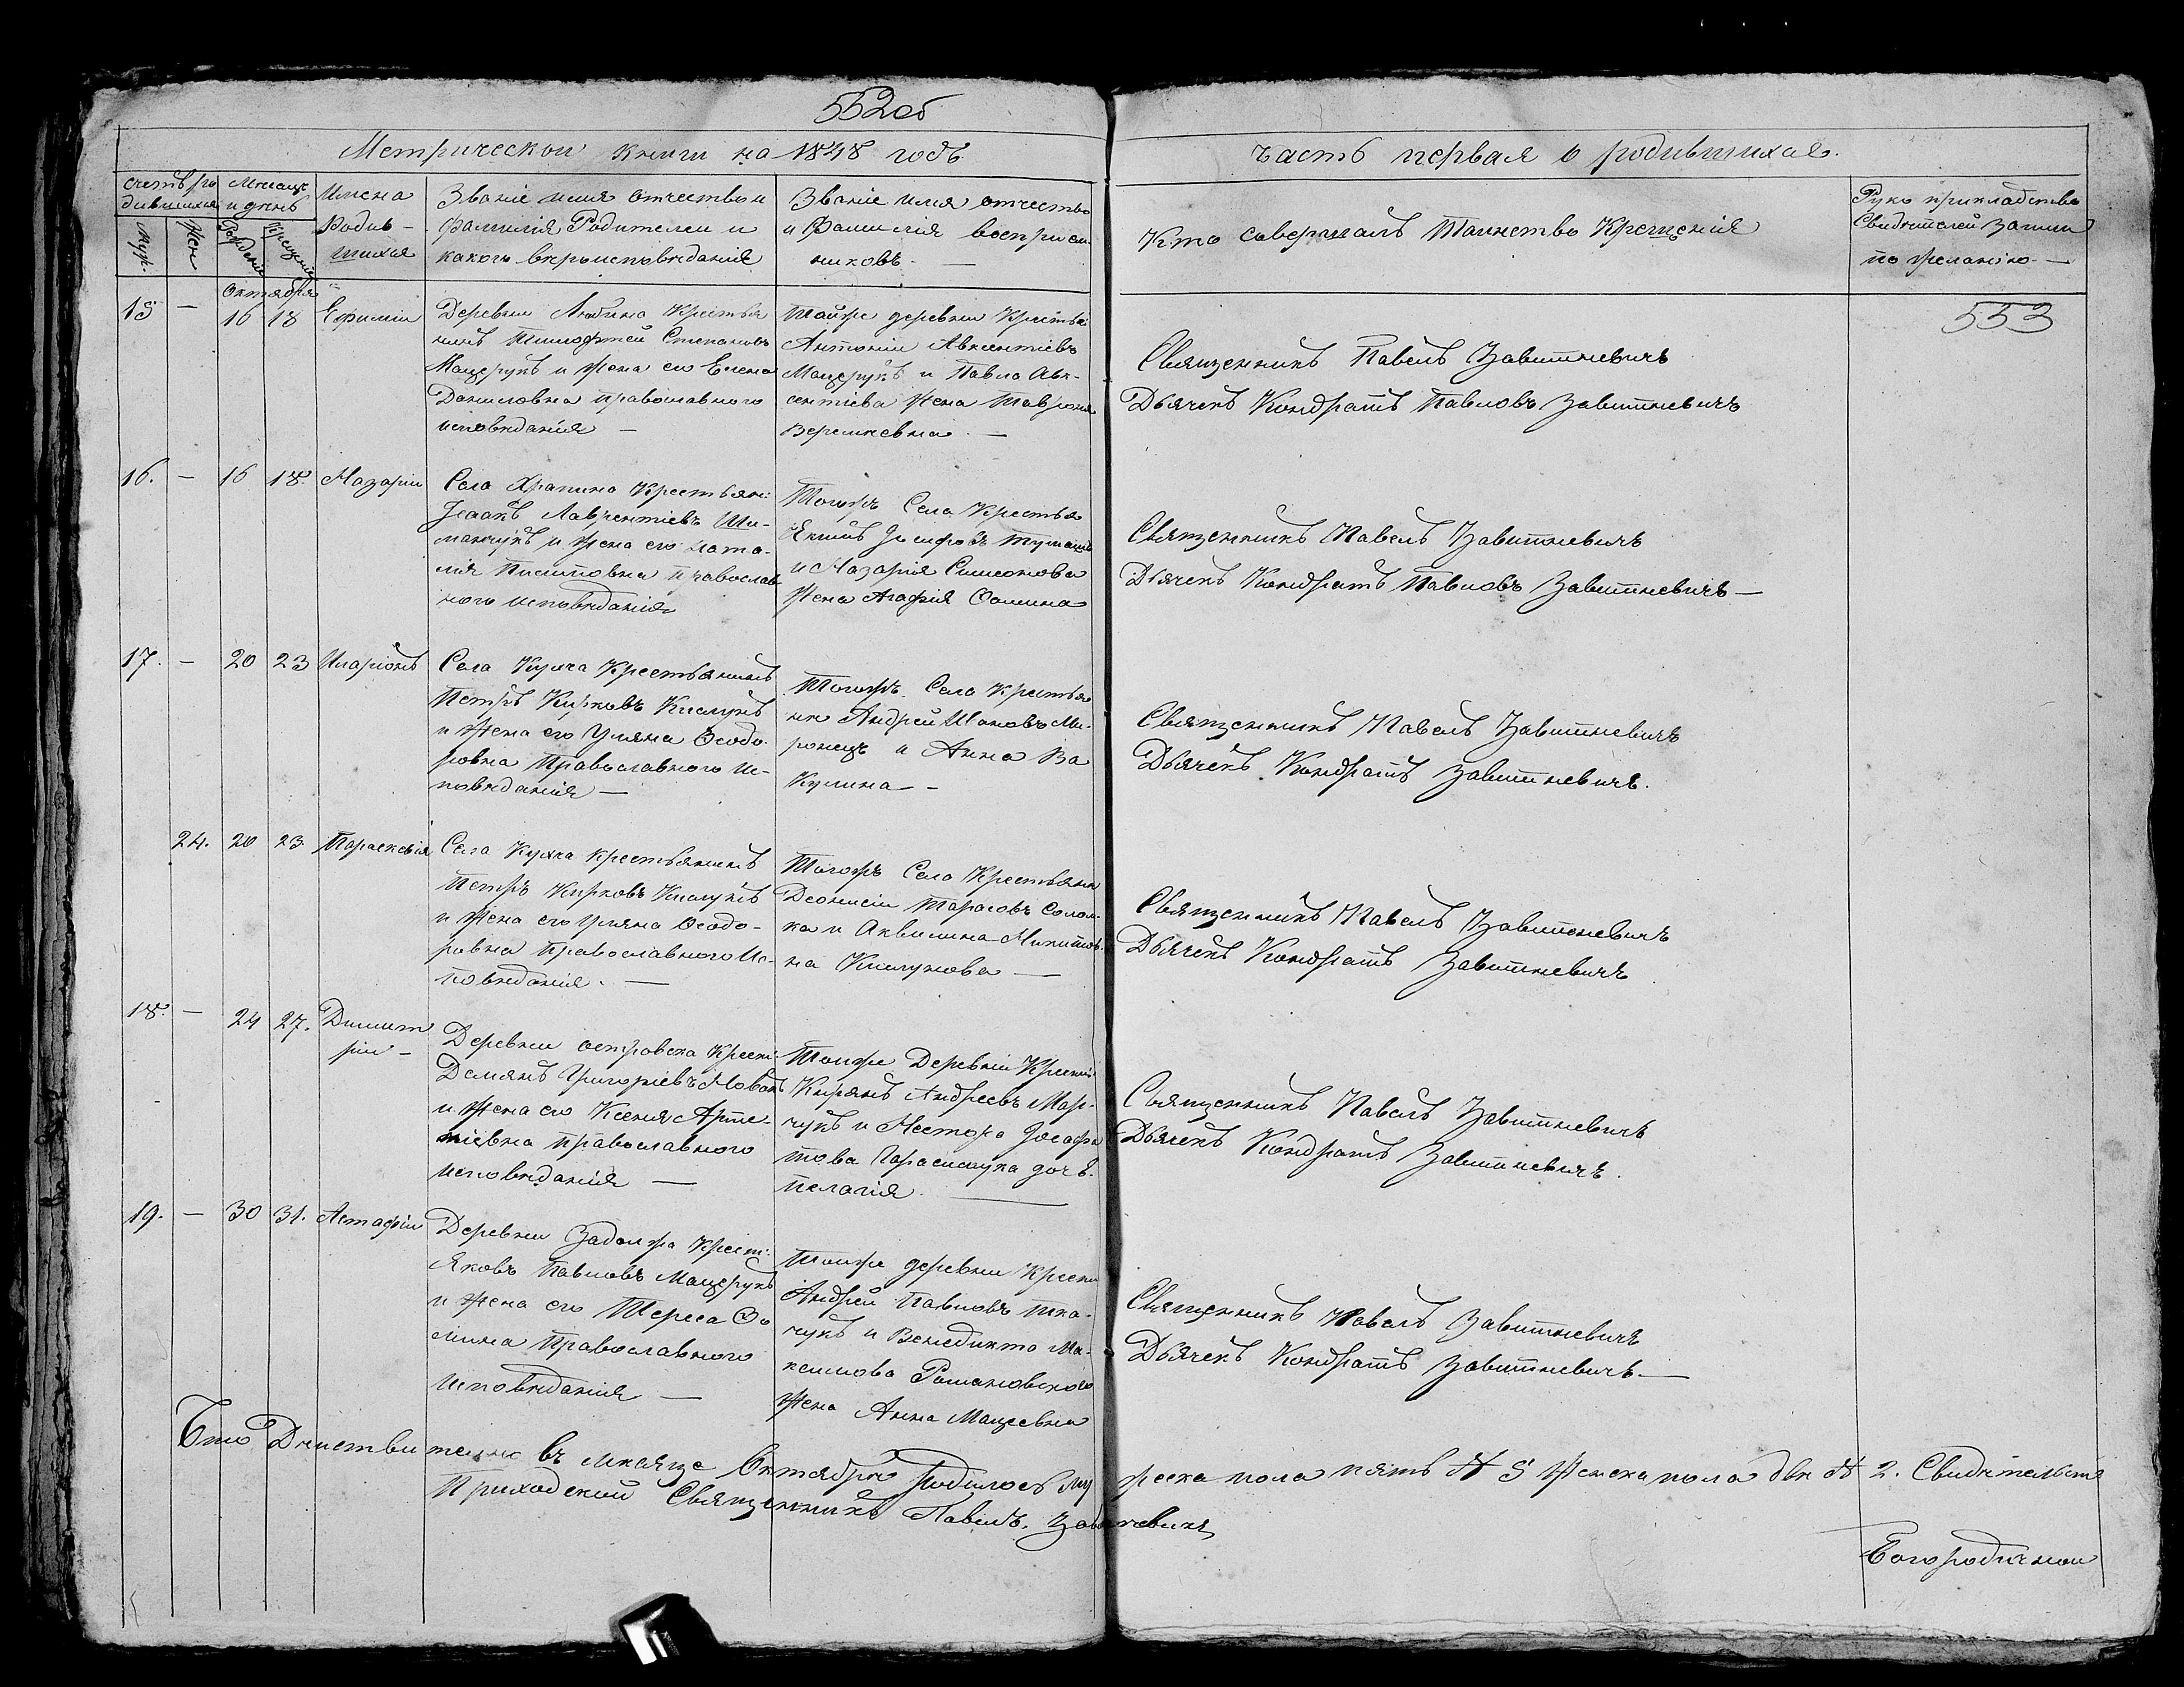 552об
Метрической книги на 1848 годъ.
часть первая о родившихся.
счетъ ро
дившихся
Муж.
Жен
Мѣсяцъ
и день
Рожденія
Крещенія
Имена
Родив-
шихся
Званіе имя отчество и
фамилія Родителей и
какого вѣроисповѣданія
Званіе имя отчество
и Фамилія воспріем
никовъ.
Кто совершалъ Таинство Крещенія
Руко прикладство
Свидѣтелей записи
по желанію
553
Октября
15 — 16 18 Ефимій
Деревни Любина Крестья
нинъ Тимофтей Степановъ
Мацерукъ и Жена его Елена
Даниловна православного
исповѣданія —
Тойже деревни Крестья
Антоній Авксентіевъ
Мацерукъ и Павла Авк-
сентіева Жена
Веремиевна. —
Священникъ Павелъ Завитневичъ
Дьячекъ Кондратъ Павловъ Завитневичъ
16. — 16 18. Назарій
Села Храпина Крестьян:
Исаакъ Лаврентіевъ Ши-
манчукъ и Жена его Ната-
лія Пилиповна православ
ного исповѣданія
Тогожъ Села Крестья
Якимъ Іосифовъ
и Назарія Симеонова
Жена Агафія Фомина
Священникъ Павелъ Завитневичъ
Дьячекъ Кондратъ Павловъ Завитневичъ —
17. — 20 23 Иларіонъ
Села Кухча Крестьянинъ
Петръ Кирковъ Кислукъ
и Жена его Уляна Ѳеодо-
ровна Православного Ис-
повѣданія —
Тогожъ Села Крестья
не Андрей Ивановъ Ми-
ронецъ и Анна Ва
Кулина —
Священникъ Павелъ Завитневичъ
Дьячекъ Кондратъ Завитневичъ.
24. 20 23 Параскевія
Села Кухча крестьянинъ
Петръ Кирковъ Кислукъ
и Жена его Уляна Ѳеодо-
ровна Православного Ис-
повѣданія. —
Тогожъ Села Крестьяни
Деонисій Тарасовъ Солом-
ка и Аквилина Никитов-
на Кислукова —
Священникъ Павелъ Завитневичъ
Дьячекъ Кондратъ Завитневичъ
18. — 24 27. Димит
рій —
Деревни островска Крест:
Демянъ Григоріевъ Новакъ
и Жена его Ксенія Арте-
міевна православного
исповѣданія —
Тойже Деревни Крест
Киріянъ Андреевъ Мар-
чукъ и Нестора Іосафа
това Герасимчука дочь
пелагія. —
Священникъ Павелъ Завитневичъ
Дьячекъ Кондратъ Завитневичъ.
19. — 30 31. Астафій
Деревни Задолжа Крест:
Яковъ Павловъ Мацерукъ
и Жена его Тереса Ѳо
мина Православного
исповѣданія —
Тойже деревни Крест
Андрей Павловъ Тка-
чукъ и Венедикта Ма-
ксимова Романовского
Жена Анна Мацеевна
Священникъ Павелъ Завитневичъ
Дьячекъ Кондратъ Завитневичъ. —
Что Дѣйствительно въ мѣсяце Октябрѣ родилось му
жеска пола пять № 5 Женска пола двѣ № 2. Свидѣтельств
Приходской Священникъ Павелъ Завитневичъ
Богородичной